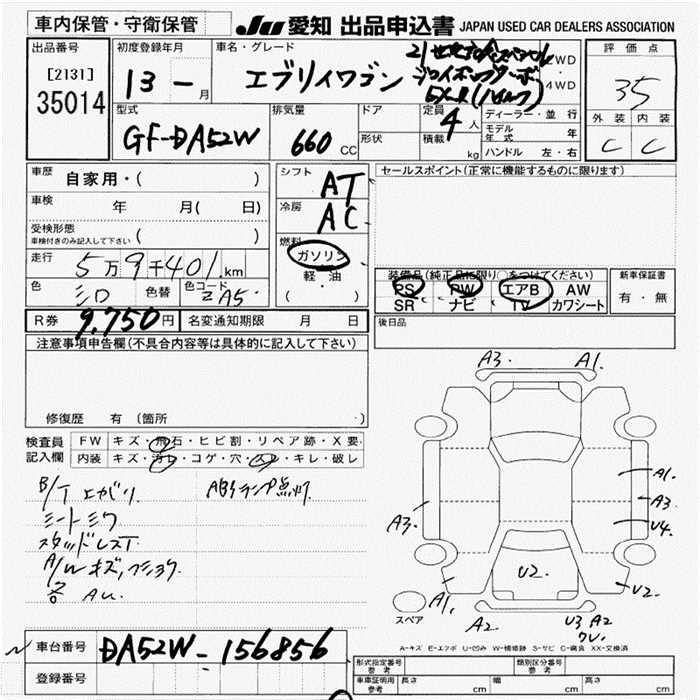 車内保管・守衛保管
JU 愛知 出品申込書 JAPAN USED CAR DEALERS ASSOCIATION
出品番号
[2131]
35014
初度登録年月
13 - 月
車名・グレード
エブリイワゴン
ジョイポップターボ
2WD
4WD
評価点
35
外装 内装
C C
型式
GF-DA52W
排気量
660 CC
ドア
形状
定員
4 人
積載
kg
ディーラー・並行
モデル年式 年
ハンドル 左・右
車歴 自家用・( )
車検 年 月( 日)
受検形態
車検付きのみ記入して下さい ( )
走行 5万9千401km
色 シロ 色替 色コード ZA5
R券 9,750円 名変通知期限 月 日
シフト AT
冷房 AC
燃料
ガソリン
軽油
( )
セールスポイント(正常に機能するものに限ります)
装備品(純正品に限り○をつけてください)
PS PW エアB AW
SR ナビ TV カワシート
新車保証書
有・無
後日品
注意事項申告欄(不具合内容等は具体的に記入して下さい)
修復歴 有 〔箇所 〕
検査員
記入欄
FW キズ・飛石・ヒビ割・リペア跡・X要
内装 キズ・汚レ・コゲ・穴・スレ・キレ・破レ
ABSランプ点灯
シートシワ
スタッドレスT
A3. A1.
A1.
A3
U4.
A3.
U2.
U2.
A1.
A2.
U3 A2
スペア
A-キズ E-エクボ U-凹み W-補修跡 S-サビ C-腐食 XX-交換済
車台番号 DA52W-156856
登録番号
形式指定番号
参考
類別区分番号
参考
車庫証明用
参考
長さ cm 幅 cm 高さ cm